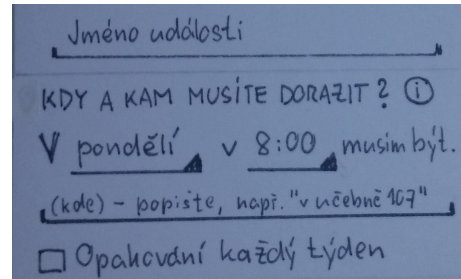 Jméno události
KDY A KAM MUSÍTE DORAZIT? ⓘ
V pondělí v 8:00 musím být.
(kde) - popište, např. "v učebně 107"
☐ Opakování každý týden